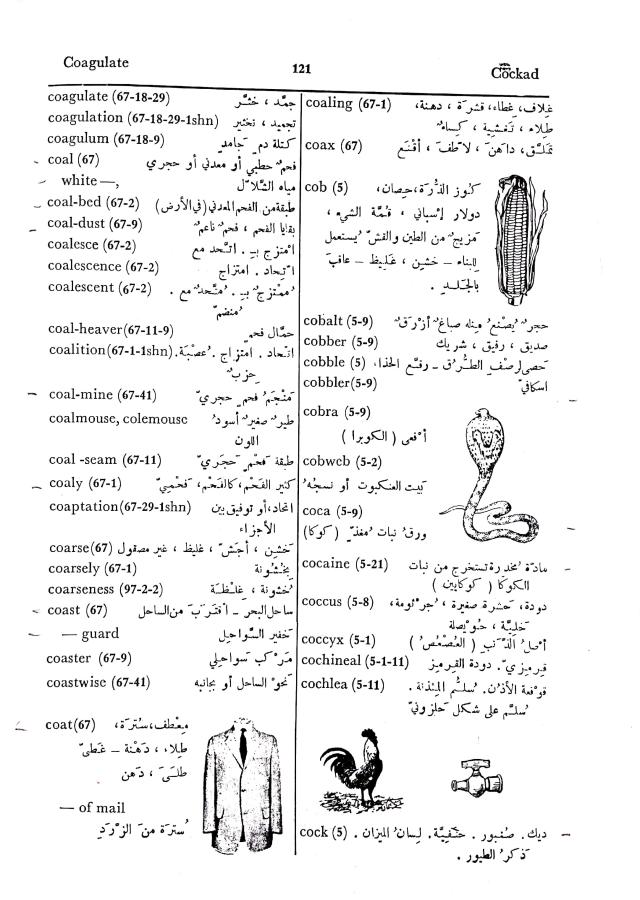 Coagulate
121
Cockad
coagulate (67-18-29) جمَّد ، خثَّر
coagulation (67-18-29-1shn) تجميد ، تخثير
coagulum (67-18-9) كتلة دم ٍ جامد
coal (67) فحمٌ حطبي أو معدني أو حجري
white —, مياه الشَّلاّل
coal-bed (67-2) طبقة من الفحم المعدني (في الأرض)
coal-dust (67-9) بقايا الفحم ، فحمٌ ناعمٌ
coalesce (67-2) امتزج بـِ . اتَّحد مع
coalescence (67-2) اتِّحاد . امتزاج
coalescent (67-2) مُمتزج بـِ . مُتَّحد مع .
مُنضمّ
coal-heaver (67-11-9) حمَّال فحم ٍ
coalition (67-1-1shn) اتحاد . امتزاج . عُصْبَة .
حِزبٌ
coal-mine (67-41) مَنْجَمُ فحم ٍ حجريّ
coalmouse, colemouse طيرٌ صغيرٌ أسودُ
اللون
coal -seam (67-11) طبقة فَحم ٍ حَجَريّ
coaly (67-1) كثير الفَحْم، كالفَحْم، فَحْميّ
coaptation (67-29-1shn) اتحاد، أو توفيق بين
الأجزاء
coarse (67) خشِن ، أجَشّ ، غليظ ، غير مصقول
coarsely (67-1) بخُشُونة
coarseness (97-2-2) خُشونة ، غِلْظَة
coast (67) ساحل البحر ــ اقتَرَبَ من الساحل
— guard خفير السَّواحِل
coaster (67-9) مَرْكَب سَواحِلي
coastwise (67-41) نَحْوَ الساحل أو بجانبه
coat (67) مِعطف، سُترَة،
طِلاء ، دَهْنَة ــ غَطَّى
طلَى ، دَهَن
— of mail
سُترَة منَ الزَّرَدِ
coaling (67-1) غِلاف، غِطاء، قشرَة ، دهنة،
طِلاء ، تَغْشِيَة ، كِساءٌ
coax (67) تملَّقَ، داهَنَ، لاطَفَ ، أقْنَعَ
cob (5) كُوز الذُّرَة، حِصان،
دولار إسباني ، قِمَّة الشيء ،
مَزيجٌ من الطين والقشّ يُستعمل
للبناء ــ خشِن ، غَليظ ــ عاقبَ
بالجَلد .
cobalt (5-9) حجرٌ يُصْنعُ منه صباغٌ أزْرقُ
cobber (5-9) صديق ، رفيق ، شريك
cobble (5) حصى لرصْف الطُّرُق ــ رقَّع الحذاء
cobbler(5-9) اسكافيّ
cobra (5-9)
أفعى ( الكوبرا )
cobweb (5-2)
بَيت العنكبوت أو نسجُه
coca (5-9)
ورق نبات مُغذّ ٍ (كوكا)
cocaine (5-21) مادّة مُخدرة تستخرج من نبات
الكوكا ( كوكايين )
coccus (5-8) دودة، حَشرة صغيرة ، جُرثومة،
خَليَّة ، حُوَيْصلة
coccyx (5-1) أصلُ الذَّنَب ( العُصْعُص )
cochineal (5-1-11) قِرمِزيّ . دودة القرمز
cochlea (5-11) قوقعة الأذن. سُلَّمُ المِئذنة .
سُلَّم على شكل حلزونيّ
cock (5) ديك. صُنبور . حَنَفيَّة. لِسانُ الميزان .
ذكَرُ الطيور .